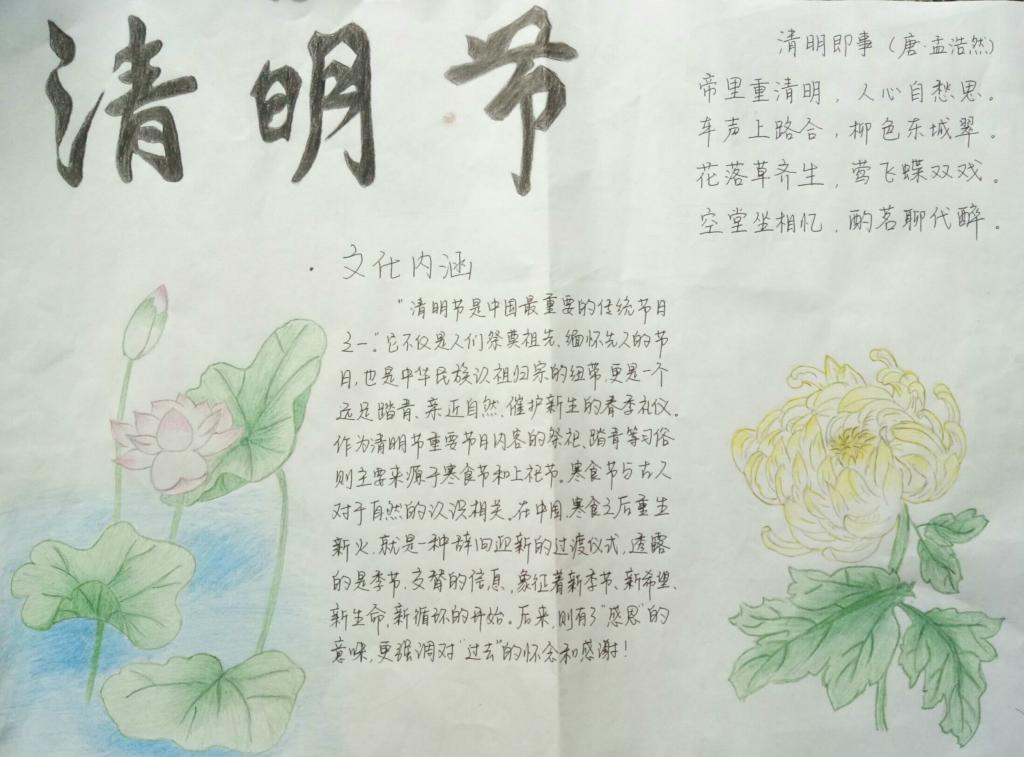 清明节
清明即事（唐·孟浩然）
帝里重清明，人心自愁思。
车声上路合，柳色东城翠。
花落草齐生，莺飞蝶双戏。
空堂坐相忆，酌茗聊代醉。
·文化内涵
"清明节是中国最重要的传统节日
之一"。它不仅是人们祭奠祖先、缅怀先人的节
日，也是中华民族认祖归宗的纽带，更是一个
远足踏青、亲近自然、催护新生的春季礼仪。
作为清明节重要节日内容的祭祀、踏青等习俗
则主要来源于寒食节和上祀节。寒食节与古人
对于自然的认识相关。在中国，寒食之后重生
新火，就是一种辞旧迎新的过渡仪式，透露
的是季节、交替的信息，象征着新季节、新希望、
新生命，新循环的开始。后来，则有了"感恩"的
意味，更强调对"过去"的怀念和感谢！